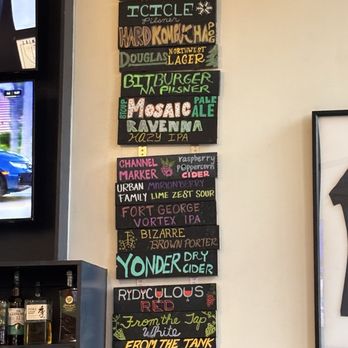 ICICLE
Pilsner
HARD KOMBUCHA
POG
DOUGLAS NORTHWEST
LAGER
BITBURGER
NA PILSNER
MOSAIC PALE
ALE
RAVENNA
HAZY IPA
CHANNEL raspberry
MARKER peppercorn
CIDER
URBAN MARIONBERRY
FAMILY LIME ZEST SOUR
FORT GEORGE
VORTEX IPA
BIZARRE
BROWN PORTER
YONDER DRY
CIDER
RYDYCULOUS
RED
From the Tap
White
FROM THE TANK